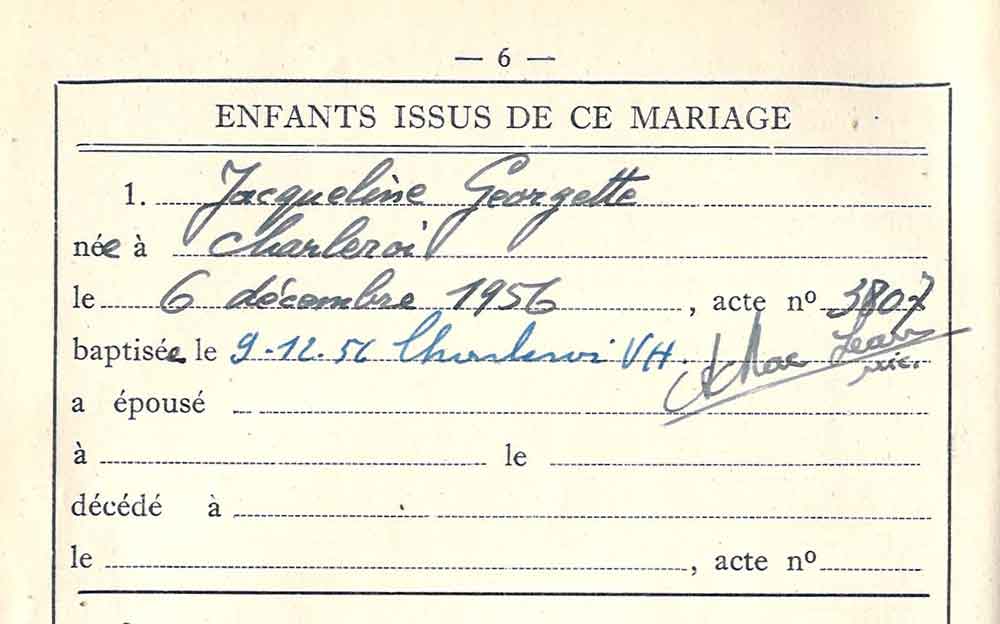 — 6 —
ENFANTS ISSUS DE CE MARIAGE
1. Jacqueline Georgette
née à Charleroi
le 6 décembre 1956, acte nº 3807
baptisée le 9-12-56 Charleroi VH.
a épousé
à le
décédé à
le , acte nº